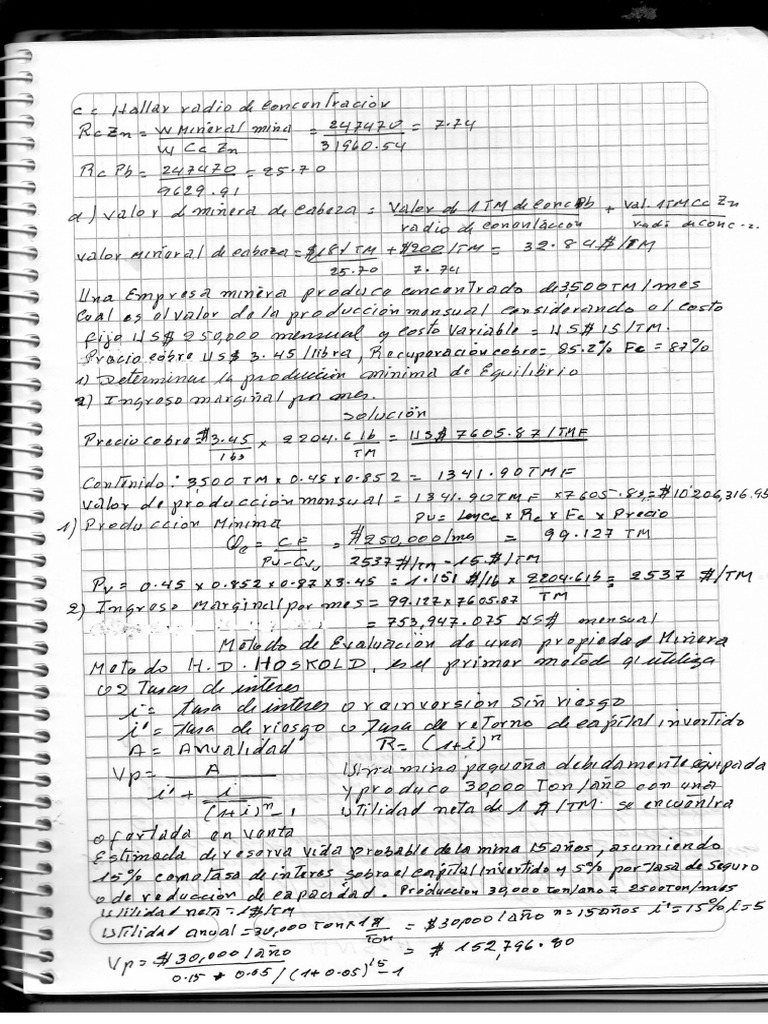 cc Hallar radio de Concentración
Rc Zn = W Mineral mina / W Cc Zn = 247470 / 31960.54 = 7.74
Rc Pb = 247470 / 9629.91 = 25.70
d) Valor d minera de Cabeza = Valor de 1 TM de Conc Pb / radio de + Val. 1TM Cc Zn / radi de conc.
Valor mineral de cabeza = $181 TM / 25.70 + $200 / TM / 7.74 = 32.84 $/TM
Una Empresa minera produce concentrado de 3,500 TM/mes
Cual es el valor de la producción mensual considerando al costo
fijo US$ 250,000 mensual y costo variable = US$ 15/TM.
Precio cobre US$ 3.45 / libra, Recuperación cobre = 85.2% Fc = 87%
1) Determinar la producción minima de Equilibrio
2) Ingreso marginal por mes.
Solución
Precio cobre = $ 3.45 / lbs x 2204.6 lb / TM = US$ 7605.87 / TMF
Contenido: 3,500 TM x 0.45 x 0.852 = 1341.90 TMF
Valor de producción mensual = 1341.90 TMF x 7605.87 = $ 10'206,316.95
1) Producción Minima PV = Ley cc x Rc x Fc x Precio
Qe = CF / PV - CVu = $250,000/mes / 2537 $/TM - 15 $/TM = 99.127 TM
Pv = 0.45 x 0.852 x 0.87 x 3.45 = 1.151 $/lb x 2204.6 lb / TM = 2537 $/TM
2) Ingreso Marginal por mes = 99.127 x 7605.87
= 753,947.075 US$ mensual
Metodo de Evaluación de una propiedad Minera
Metodo H.D. HOSKOLD, es el primer metodo q' utiliza
2 Tasas de interes
i = tasa de interes o reinversión sin riesgo
i' = tasa de riesgo o Tasa de retorno de capital invertido
A = Anualidad R = (1+i)^n
Vp = A / i' + i / (1+i)^n - 1
Una mina pequeña debidamente equipada
y produce 30,000 Ton/año con una
utilidad neta de 1 $/TM. se encuentra
ofertada en venta
Estimada de reserva vida probable de la mina 15 años, asumiendo
15% como tasa de interes sobre el capital invertido y 5% por tasa de seguro
o de reducción de capacidad. Producción 30,000 ton/año = 2500 Ton/mes
Utilidad neta = 1$/TM
Utilidad anual = 30,000 Ton x 1$ / Ton = $30,000 / año n = 15 años i' = 15% i = 5
Vp = $30,000 / año / 0.15 + 0.05 / (1+0.05)^15 - 1 = $ 152,796.80